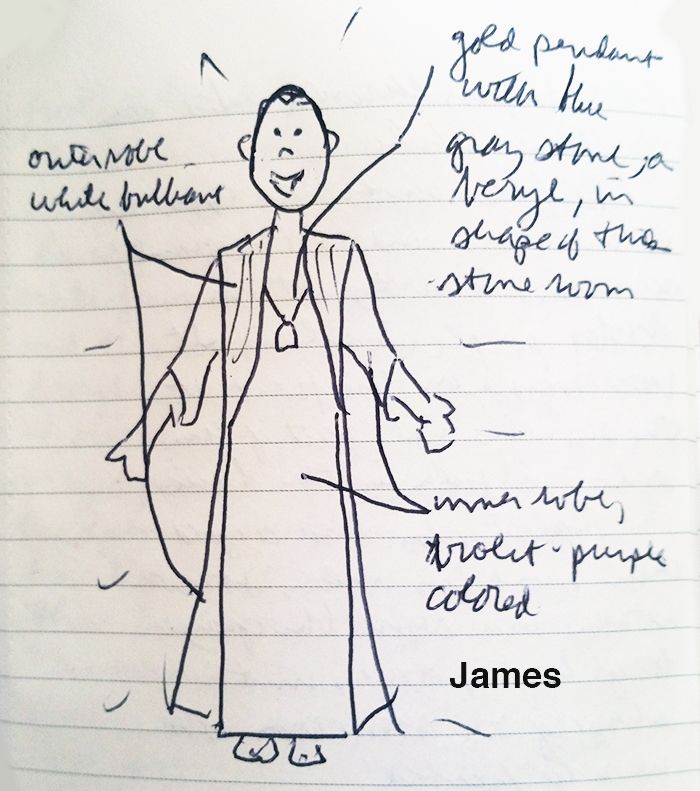 gold pendant
with blue
gray stone, a
beryl, in
shape of this
stone room
outer robe
white brilliant
inner robe,
violet-purple
colored
James